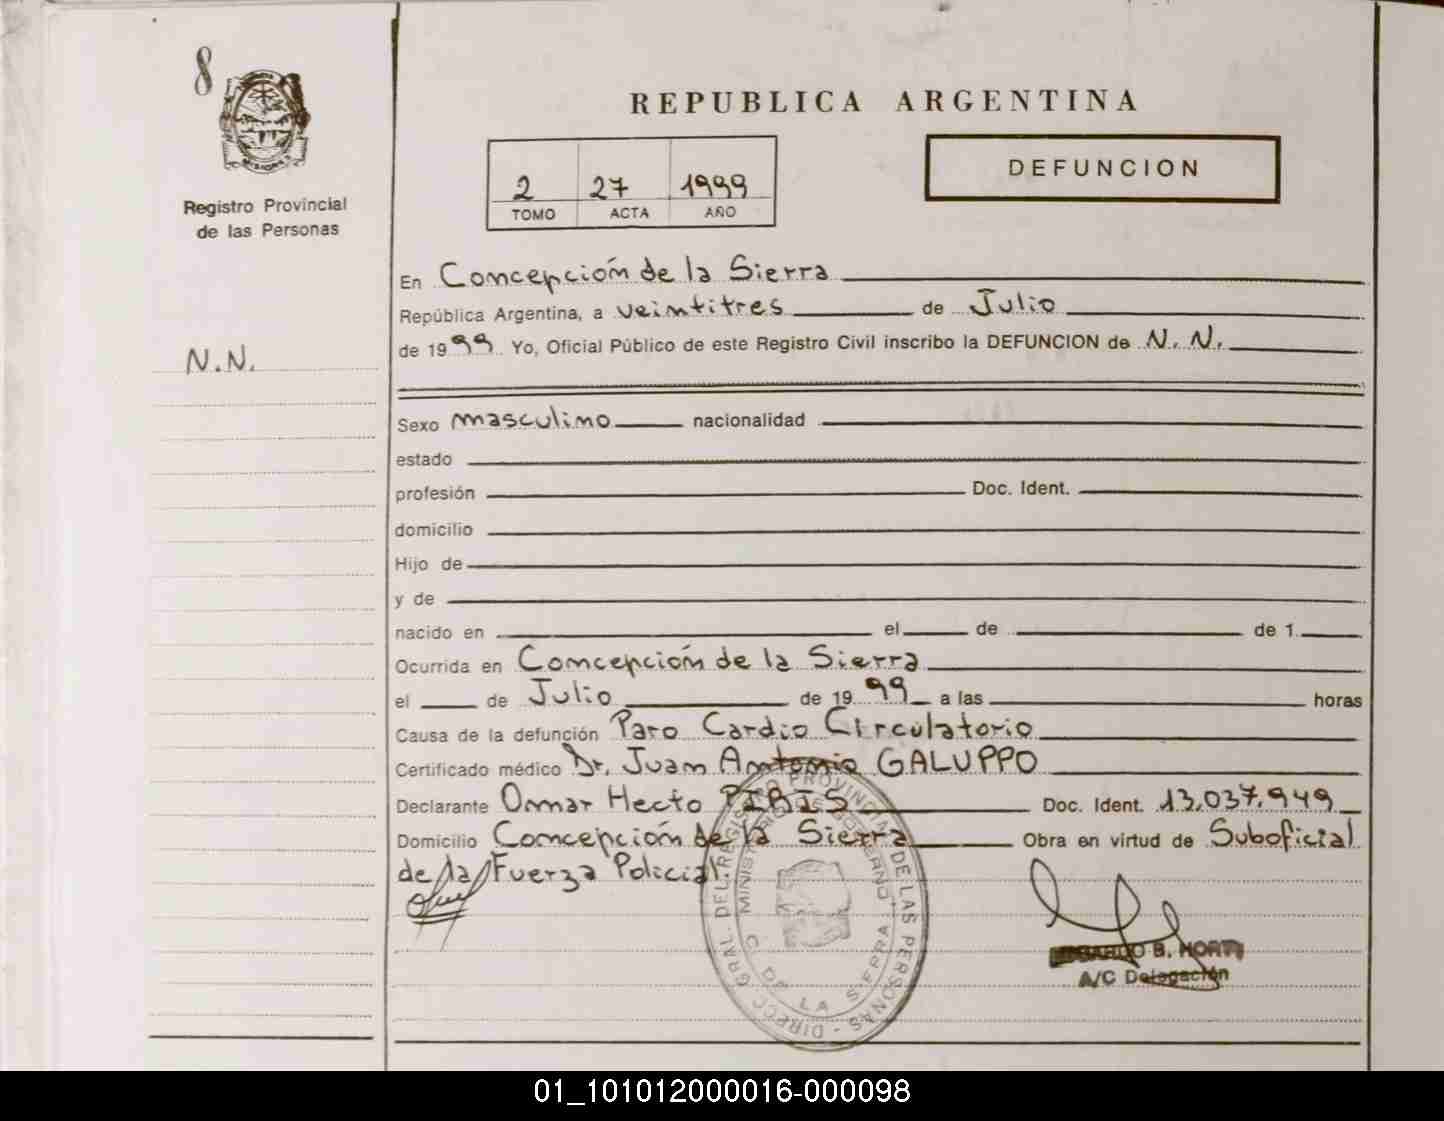 8
REPUBLICA ARGENTINA
MISIONES
2 27 1999
TOMO ACTA AÑO
DEFUNCION
Registro Provincial
de las Personas
N.N.
En Concepción de la Sierra
República Argentina, a veintitres de Julio
de 1999 Yo, Oficial Público de este Registro Civil inscribo la DEFUNCION de N. N.
Sexo masculino nacionalidad
estado
profesión Doc. Ident.
domicilio
Hijo de
y de
nacido en el de de 1
Ocurrida en Concepción de la Sierra
el de Julio de 1999 a las horas
Causa de la defunción Paro Cardio Circulatorio
Certificado médico Dr. Juan Antonio GALUPPO
Declarante Omar Hecto PIRIS Doc. Ident. 13,037,949
Domicilio Concepción de la Sierra Obra en virtud de Suboficial
de la Fuerza Policial.
DIRECC. GRAL. DEL REGISTRO PROVINCIAL DE LAS PERSONAS -
MINISTERIO DE GOBIERNO
C. DE LA SIERRA
B. HORT
A/C Delegación
01_101012000016-000098